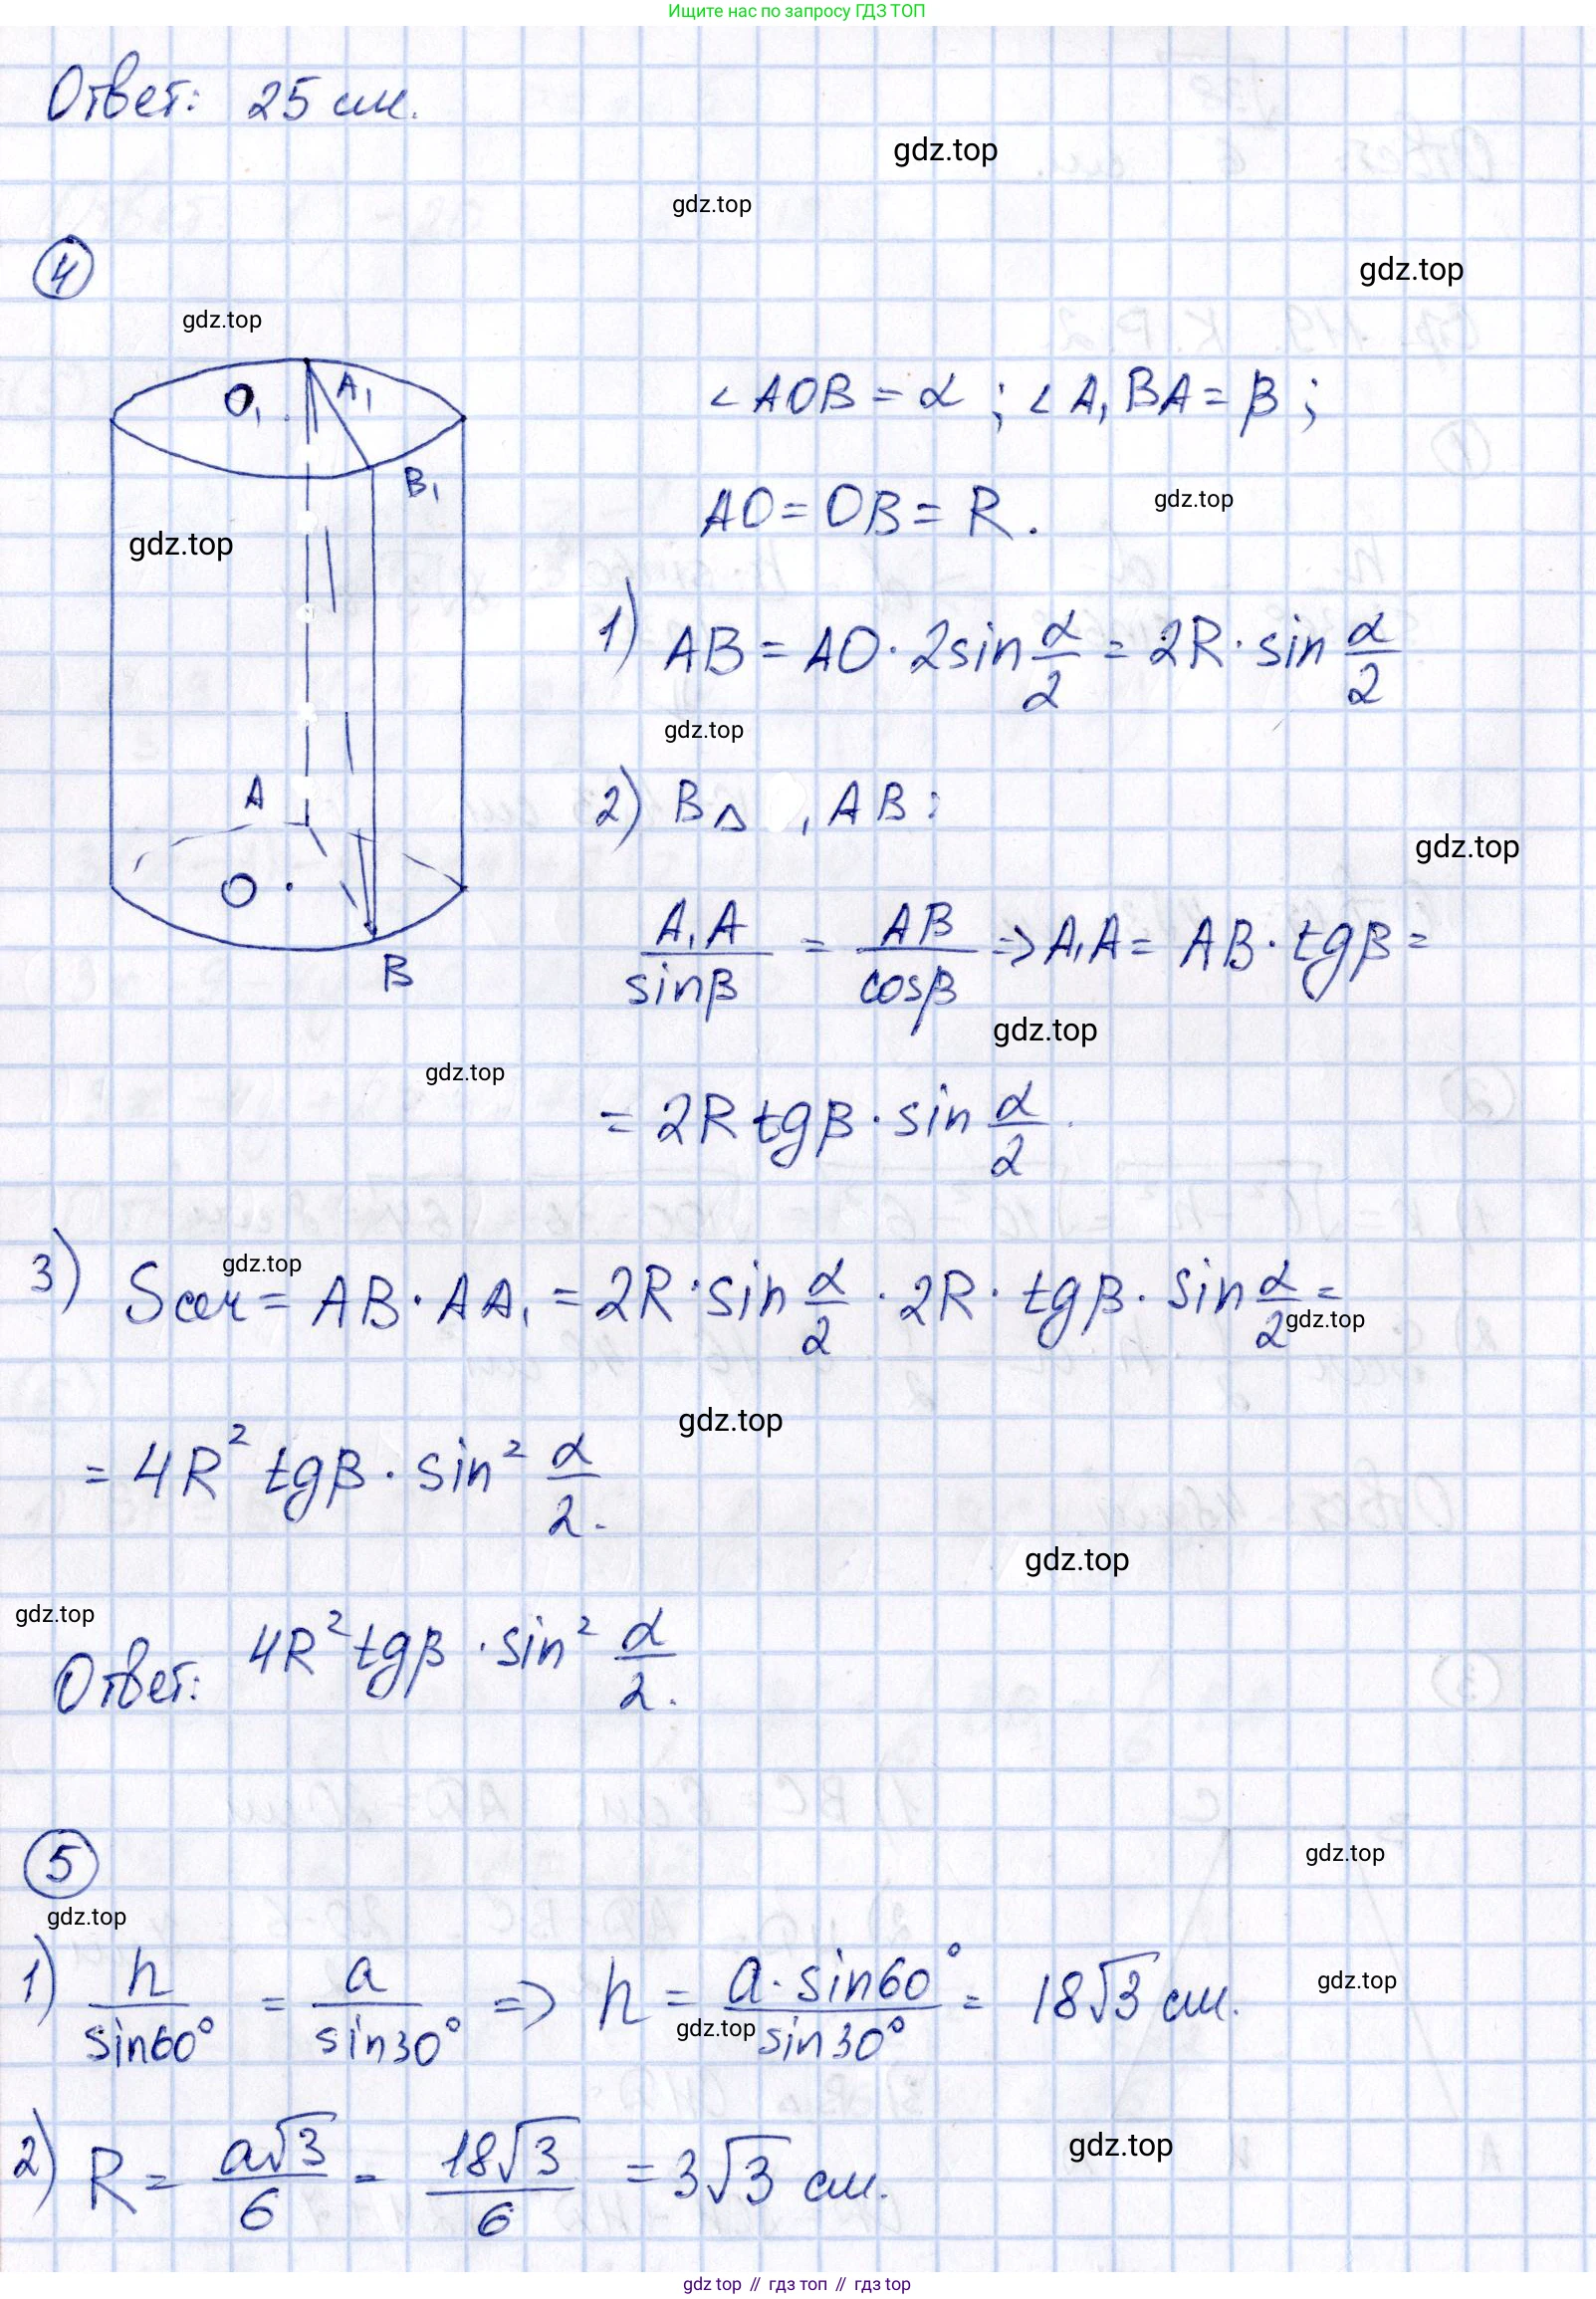 Ищите нас по запросу ГДЗ ТОП
Ответ: 25 см.
gdz.top
gdz.top
④
gdz.top
gdz.top
O₁ A₁
B₁
gdz.top
A
O
B
∠AOB = α ; ∠A₁BA = β ;
AO = OB = R.
gdz.top
1) AB = AO · 2sin α/2 = 2R · sin α/2
gdz.top
2) В △ ₁AB:
gdz.top
A₁A/sinβ = AB/cosβ => A₁A = AB · tgβ =
gdz.top
gdz.top
= 2R tgβ · sin α/2.
3) Sсеч = AB · AA₁ = 2R · sin α/2 · 2R · tgβ · sin α/2 =
gdz.top
gdz.top
gdz.top
= 4R² tgβ · sin² α/2.
gdz.top
gdz.top
Ответ: 4R² tgβ · sin² α/2.
⑤
gdz.top
gdz.top
1) h/sin60° = a/sin30° => h = a·sin60°/sin30° = 18√3 см.
gdz.top
gdz.top
2) R = a√3/6 = 18√3/6 = 3√3 см.
gdz.top
gdz top // гдз топ // гдз top